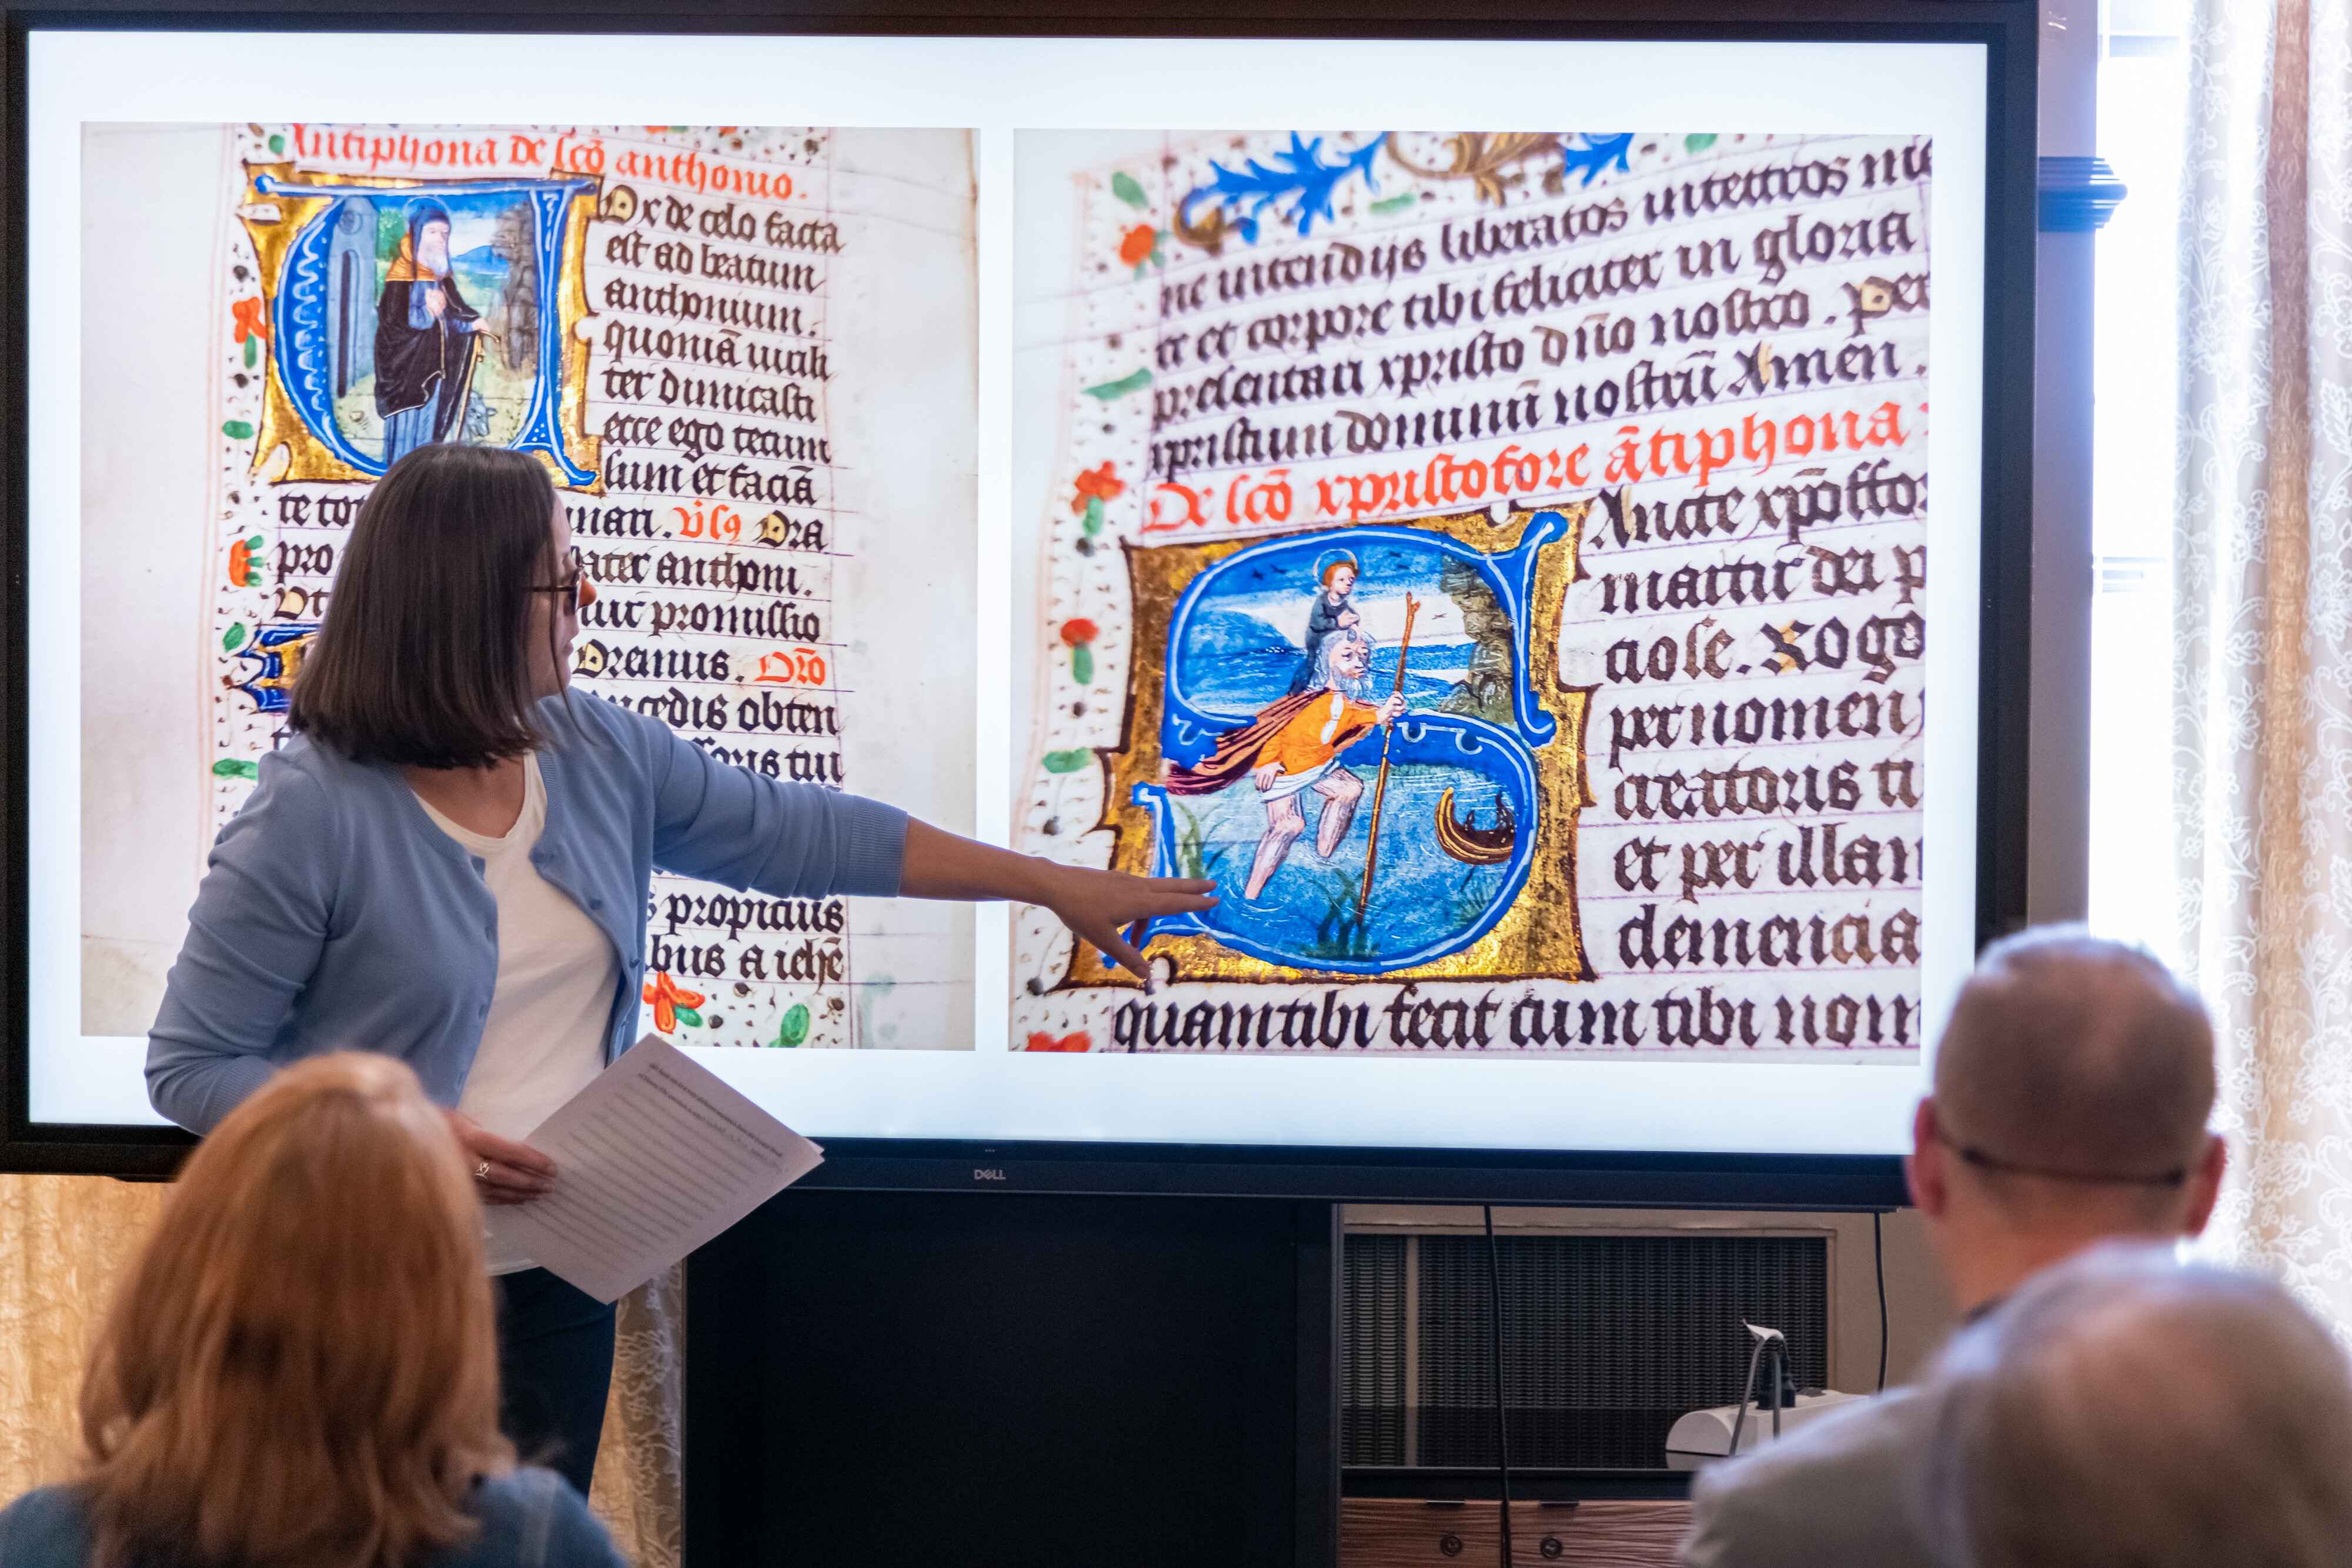 Antiphona de sc̄o anthonio.
Vox de celo facta
est ad beatum
anthonium.
quoniā uirili
ter dimicasti
ecce ego tecum
sum et faciā
te
nari. v̄sꝯ Ora
pro
pater anthoni.
Vt
promissio
Oremus. Or̄o
concedis obten
tui
propicius
bus a iehē
ne incendijs liberatos
et corpore tibi feliciter in gloria
presentari xpristo dn̄o nostro. Per
xpristum dominū nostrū Amen.
De sc̄o xpristofore ātiphona
Sancte xp̄offor
martir dei p
ciose. Rogo
per nomen
creatoris ti
et per illam
clemencia
quam tibi fecit cum tibi nom
DELL